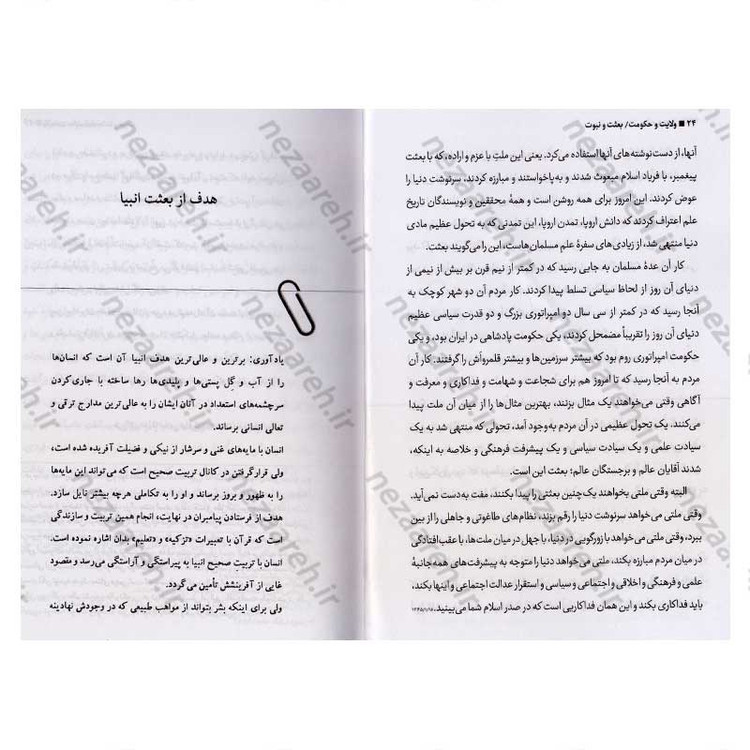 ۲۴ ■ ولایت و حکومت/ بعثت و نبوت
آنها، از دست‌نوشته‌های آنها استفاده می‌کرد. یعنی این ملت با عزم و اراده، که با بعثت
پیغمبر، با فریاد اسلام مبعوث شدند و به‌پاخواستند و مبارزه کردند، سرنوشت دنیا را
عوض کردند. این امروز برای همه روشن است و همهٔ محققین و نویسندگان تاریخ
علم اعتراف کردند که دانش اروپا، تمدن اروپا، این تمدنی که به تحول عظیم مادی
دنیا منتهی شد، از زیادی‌های سفرهٔ علم مسلمان‌هاست، این را می‌گویند بعثت.
کار آن عدهٔ مسلمان به جایی رسید که در کمتر از نیم قرن بر بیش از نیمی از
دنیای آن روز از لحاظ سیاسی تسلط پیدا کردند. کار مردم آن دو شهر کوچک به
آنجا رسید که در کمتر از سی سال دو امپراتوری بزرگ و دو قدرت سیاسی عظیم
دنیای آن روز را تقریباً مضمحل کردند، یکی حکومت پادشاهی در ایران بود، و یکی
حکومت امپراتوری روم بود که بیشتر سرزمین‌ها و بیشتر قلمرواش را گرفتند. کار آن
مردم به آنجا رسید که تا امروز هم برای شجاعت و شهامت و فداکاری و معرفت و
آگاهی وقتی می‌خواهند یک مثال بزنند، بهترین مثال‌ها را از میان آن ملت پیدا
می‌کنند. یک تحول عظیمی در آن مردم به‌وجود آمد، تحولی که منتهی شد به یک
سیادت علمی و یک سیادت سیاسی و یک پیشرفت فرهنگی و خلاصه به اینکه،
شدند آقایان عالم و برجستگان عالم؛ بعثت این است.
البته وقتی ملتی بخواهند یک‌چنین بعثتی را پیدا بکنند، مفت به‌دست نمی‌آید.
وقتی ملتی می‌خواهد سرنوشت دنیا را رقم بزند، نظام‌های طاغوتی و جاهلی را از بین
ببرد، وقتی ملتی می‌خواهد با زورگویی در دنیا، با جهل در میان ملت‌ها، با عقب‌افتادگی
در میان مردم مبارزه بکند، ملتی می‌خواهد دنیا را متوجه به پیشرفت‌های همه‌جانبهٔ
علمی و فرهنگی و اخلاقی و اجتماعی و سیاسی و استقرار عدالت اجتماعی و اینها بکند،
باید فداکاری بکند و این همان فداکاریی است که در صدر اسلام شما می‌بینید.
هدف از بعثت انبیا
یادآوری: برترین و عالی‌ترین هدف انبیا آن است که انسان‌ها
را از آب و گِل پستی‌ها و پلیدی‌ها رها ساخته با جاری‌کردن
سرچشمه‌های استعداد در آنان ایشان را به عالی‌ترین مدارج ترقی و
تعالی انسانی برساند.
انسان با مایه‌های غنی و سرشار از نیکی و فضیلت آفریده شده است،
ولی قرارگرفتن در کانال تربیت صحیح است که می‌تواند این مایه‌ها
را به ظهور و بروز برساند و او را به تکاملی هرچه بیشتر نایل سازد.
هدف از فرستادن پیامبران در نهایت، انجام همین تربیت و سازندگی
است که قرآن با تعبیرات «تزکیه» و «تعلیم» بدان اشاره نموده است.
انسان با تربیتِ صحیح انبیا به پیراستگی و آراستگی می‌رسد و مقصود
غایی از آفرینشش تأمین می‌گردد.
ولی برای اینکه بشر بتواند از مواهب طبیعی که در وجودش نهادینه
nezaareh.ir
nezaareh.ir
nezaareh.ir
nezaareh.ir
nezaareh.ir
nezaareh.ir
nezaareh.ir
nezaareh.ir